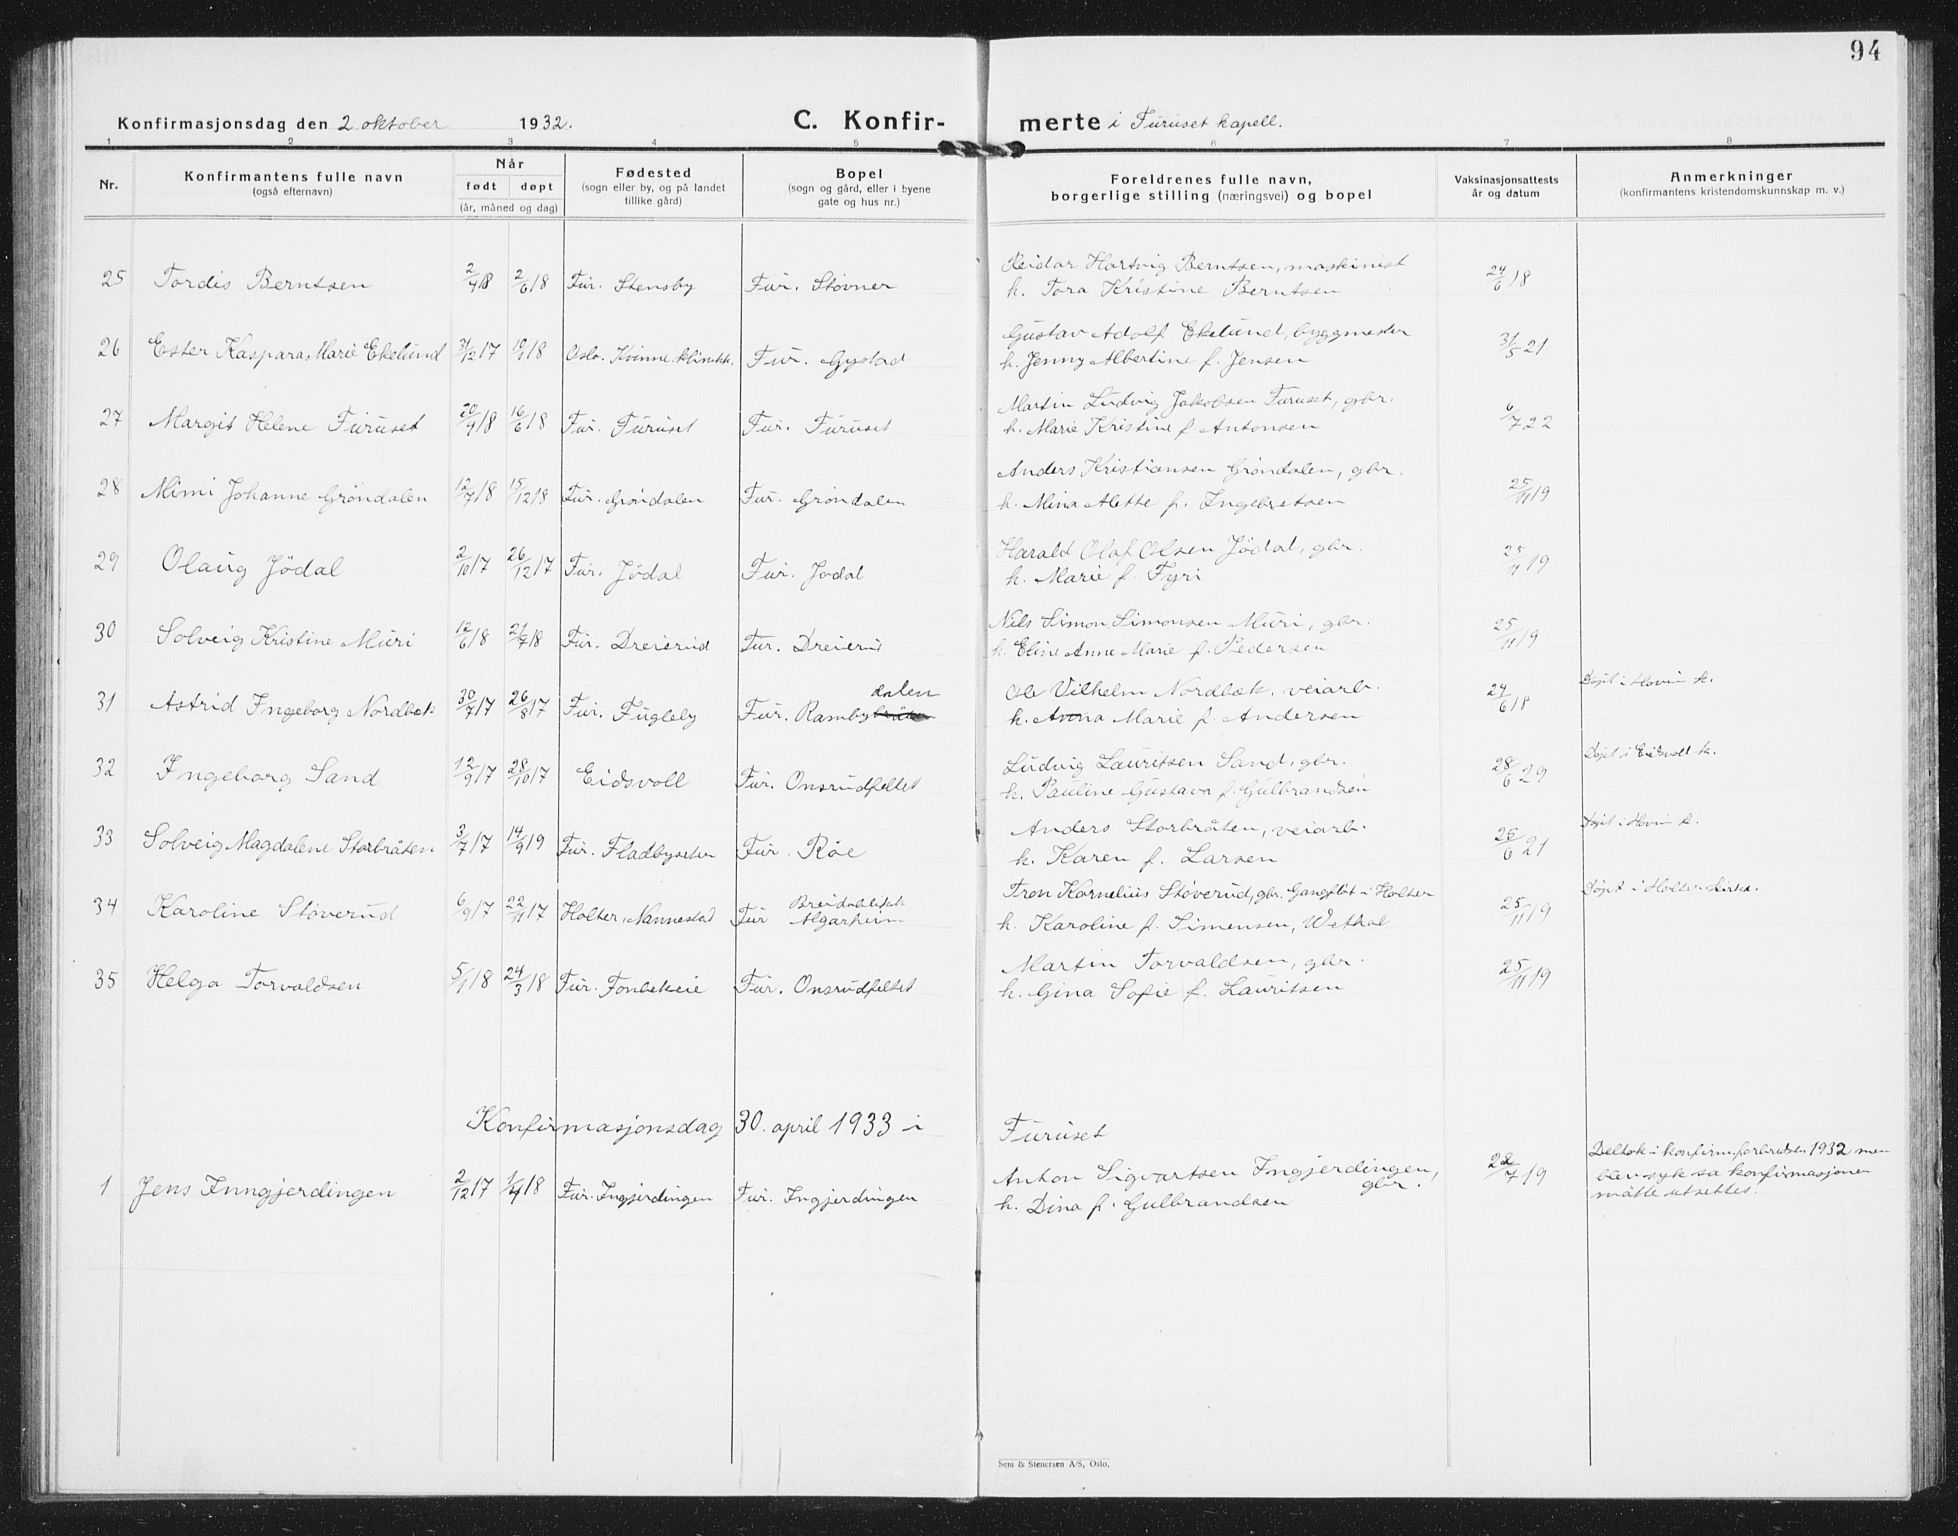 94
Konfirmasjonsdag den 2 oktober 1932. C. Konfir- merte i Furuset kapell.
1 2 3 4 5 6 7 8
Nr. Konfirmantens fulle navn (også efternavn) Når født døpt (år, måned og dag) Fødested (sogn eller by, og på landet tillike gård) Bopel (sogn og gård, eller i byene gate og hus nr.) Foreldrenes fulle navn, borgerlige stilling (næringsvei) og bopel Vaksinasjonsattests år og datum Anmerkninger (konfirmantens kristendomskunnskap m. v.)
25 Tordis Berntsen 2/4 18 2/6 18 Fur. Stensby Fur. Stovner Reidar Hartvig Berntsen, maskinist 24/6 18
h. Tora Kristine Berntsen
26 Ester Kaspara Marie Ekelund 31/12 17 18 Oslo. Kvinneklinikk. Fur. Gystad Gustav Adolf Ekelund, byggmester 31/5 21
h. Jenny Albertine f. Jensen
27 Margit Helene Furuset 20/4 18 16/6 18 Fur. Furuset Fur. Furuset Martin Ludvig Jakobsen Furuset, gbr. 6/7 22
h. Marie Kristine f. Antonsen
28 Mimi Johanne Gröndalen 12/7 18 15/12 18 Fur. Gröndalen Fur. Gröndalen Anders Kristiansen Gröndalen, gbr. 25/11 19
h. Mina Alette f. Ingebretsen
29 Olaug Jödal 2/10 17 26/12 17 Fur. Jödal Fur. Jödal Harald Olaf Olsen Jödal, gbr. 25/11 19
h. Marie f. Fyri
30 Solveig Kristine Muri 12/6 18 21/7 18 Fur. Dreierud Fur. Dreierud Nils Simon Simonsen Muri, gbr. 25/11 19
h. Eline Anne Marie f. Pedersen
31 Astrid Ingeborg Nordbæk 30/7 17 26/8 17 Fur. Fugleby Fur. Ramby dalen Ole Vilhelm Nordbæk, veiarb. 24/6 18 Døpt i Hovin k.
h. Anna Marie f. Andersen
32 Ingeborg Sand 12/9 17 28/10 17 Eidsvoll Fur. Onsrudfeltet Ludvig Lauritsen Sand, gbr. 28/6 29 Døpt i Eidsvoll k.
h. Pauline Gustava f. Gulbrandsen
33 Solveig Magdalene Storbråten 3/7 17 14/9 19 Fur. Fladbyseter Fur. Röe Anders Storbråten, veiarb. 26/6 21 Døpt i Hovin k.
h. Karen f. Larsen
34 Karoline Støverud 6/9 17 22/11 17 Holter, Nannestad Fur Algarheim Tron Kornelius Støverud, gbr. i Holter 25/11 19 Døpt i Holter kirke.
h. Karoline f. Simensen, Wethal
35 Helga Torvaldsen 5/1 18 24/3 18 Fur. Fonbekeie Fur. Onsrudfeltet Martin Torvaldsen, gbr. 25/11 19
h. Gina Sofie f. Lauritsen
Konfirmasjonsdag 30. april 1933 i Furuset
1 Jens Inngjerdingen 2/12 17 1/4 18 Fur. Ingjerdingen Fur. Ingjerdingen Anton Sigvartsen Ingjerdingen, gbr. 22/7 19 Deltok i konfirm.forberedsen 1932 men
h. Dina f. Gulbrandsen blev syk så konfirmasjonen
måtte utsettes.
Sem & Stenersen A/S, Oslo.